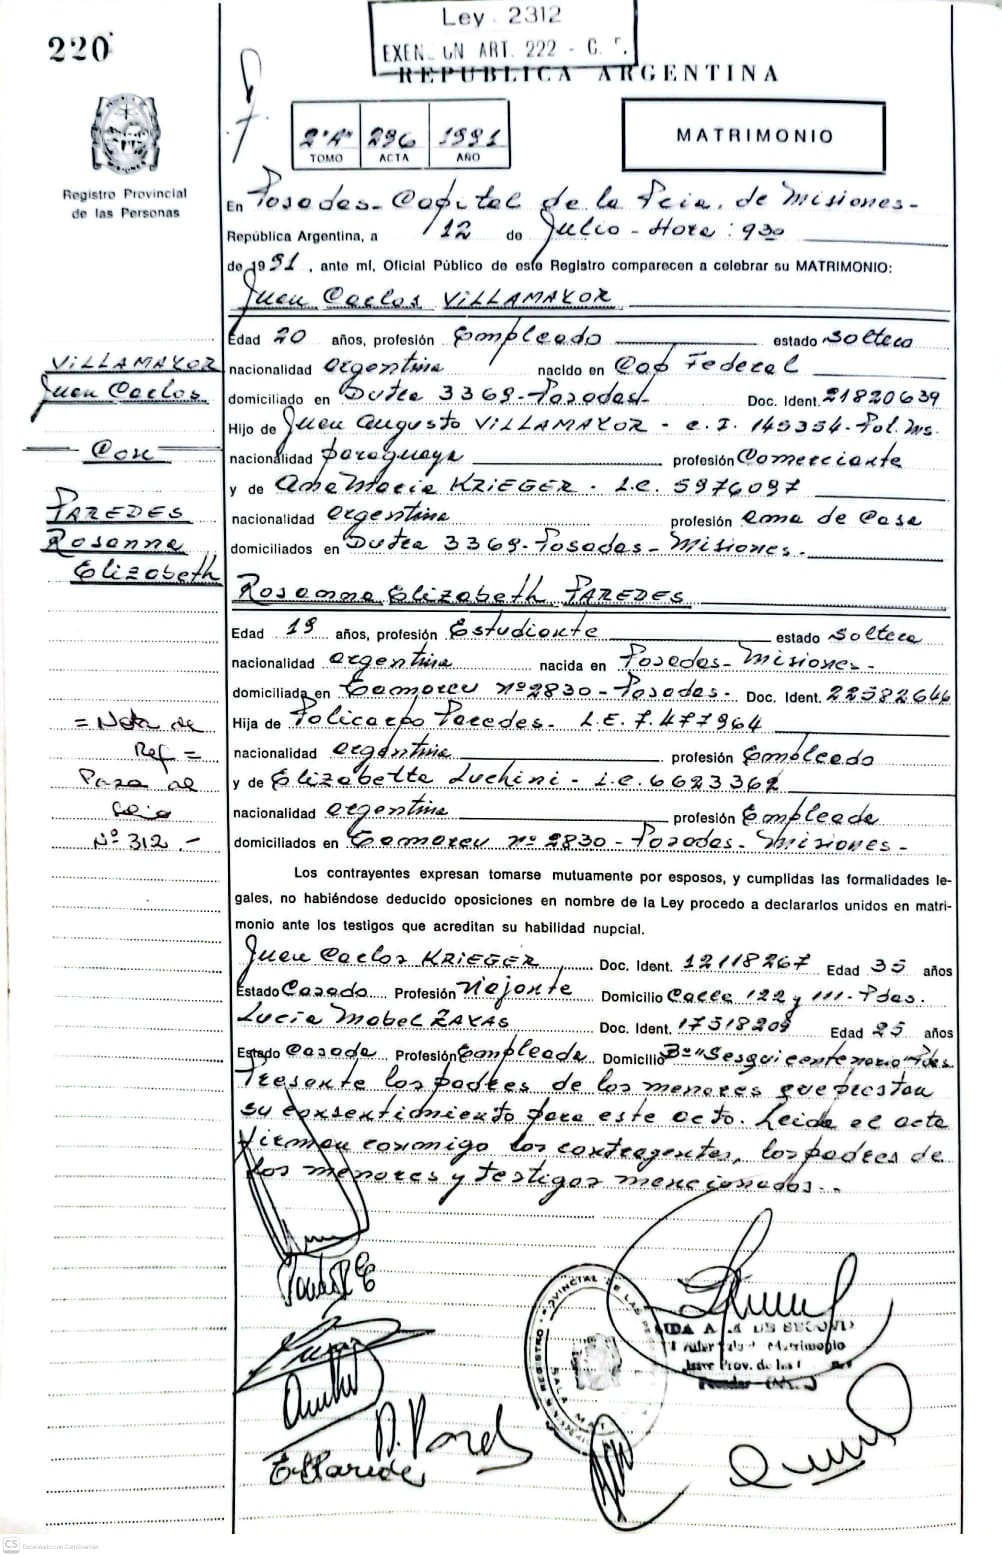 Ley 2312
EXEN ON ART. 222 - C. F.
220
REPUBLICA ARGENTINA
2º"A" 296 1991
TOMO ACTA AÑO
MATRIMONIO
Registro Provincial
de las Personas
En Posadas - Capital de la Pcia. de Misiones -
República Argentina, a 12 de Julio - Hora: 930
de 1991, ante mí, Oficial Público de este Registro comparecen a celebrar su MATRIMONIO:
Juan Carlos VILLAMAYOR
Edad 20 años, profesión Empleado estado soltero
VILLAMAYOR
Juan Carlos
Con
PAREDES
Rosanna
Elizabeth
nacionalidad argentina nacido en Cap Federal
domiciliado en Dutra 3369 - Posadas - Doc. Ident. 21820639
Hijo de Juan Augusto VILLAMAYOR - C.I. 145354 - Pol. Ms.
nacionalidad paraguaya profesión Comerciante
y de Ana María KRIEGER - L.C. 5976097
nacionalidad argentina profesión ama de casa
domiciliados en Dutra 3369 - Posadas - Misiones -
Rosanna Elizabeth PAREDES
Edad 19 años, profesión Estudiante estado soltera
nacionalidad argentina nacida en Posadas - Misiones -
domiciliada en nº 2830 - Posadas - Doc. Ident. 22582646
Hija de Policarpo Paredes - L.E. 7.477964
nacionalidad argentina profesión Empleado
y de Elizabetta Luchini - L.C. 6623362
nacionalidad argentina profesión Empleada
domiciliados en nº 2830 - Posadas - Misiones -
= Nota de
Ref =
Pasa al
folio
Nº 312 .-
Los contrayentes expresan tomarse mutuamente por esposos, y cumplidas las formalidades le-
gales, no habiéndose deducido oposiciones en nombre de la Ley procedo a declararlos unidos en matri-
monio ante los testigos que acreditan su habilidad nupcial.
Juan Carlos KRIEGER Doc. Ident. 12118267 Edad 35 años
Estado Casado Profesión Viajante Domicilio Calle 122 y 111 - Pdas.
Lucía Mabel ZAYAS Doc. Ident. 17518209 Edad 25 años
Estado Casada Profesión Empleada Domicilio Bº "Sesquicentenario" Pdas
Presente los padres de los menores que prestan
su consentimiento para este acto. Leida el acta
firman conmigo los contrayentes, los padres de
los menores y testigos mencionados..
E Paredes
REGISTRO PROVINCIAL DE LAS PE
Prov. de las
CS Escaneado con CamScanner